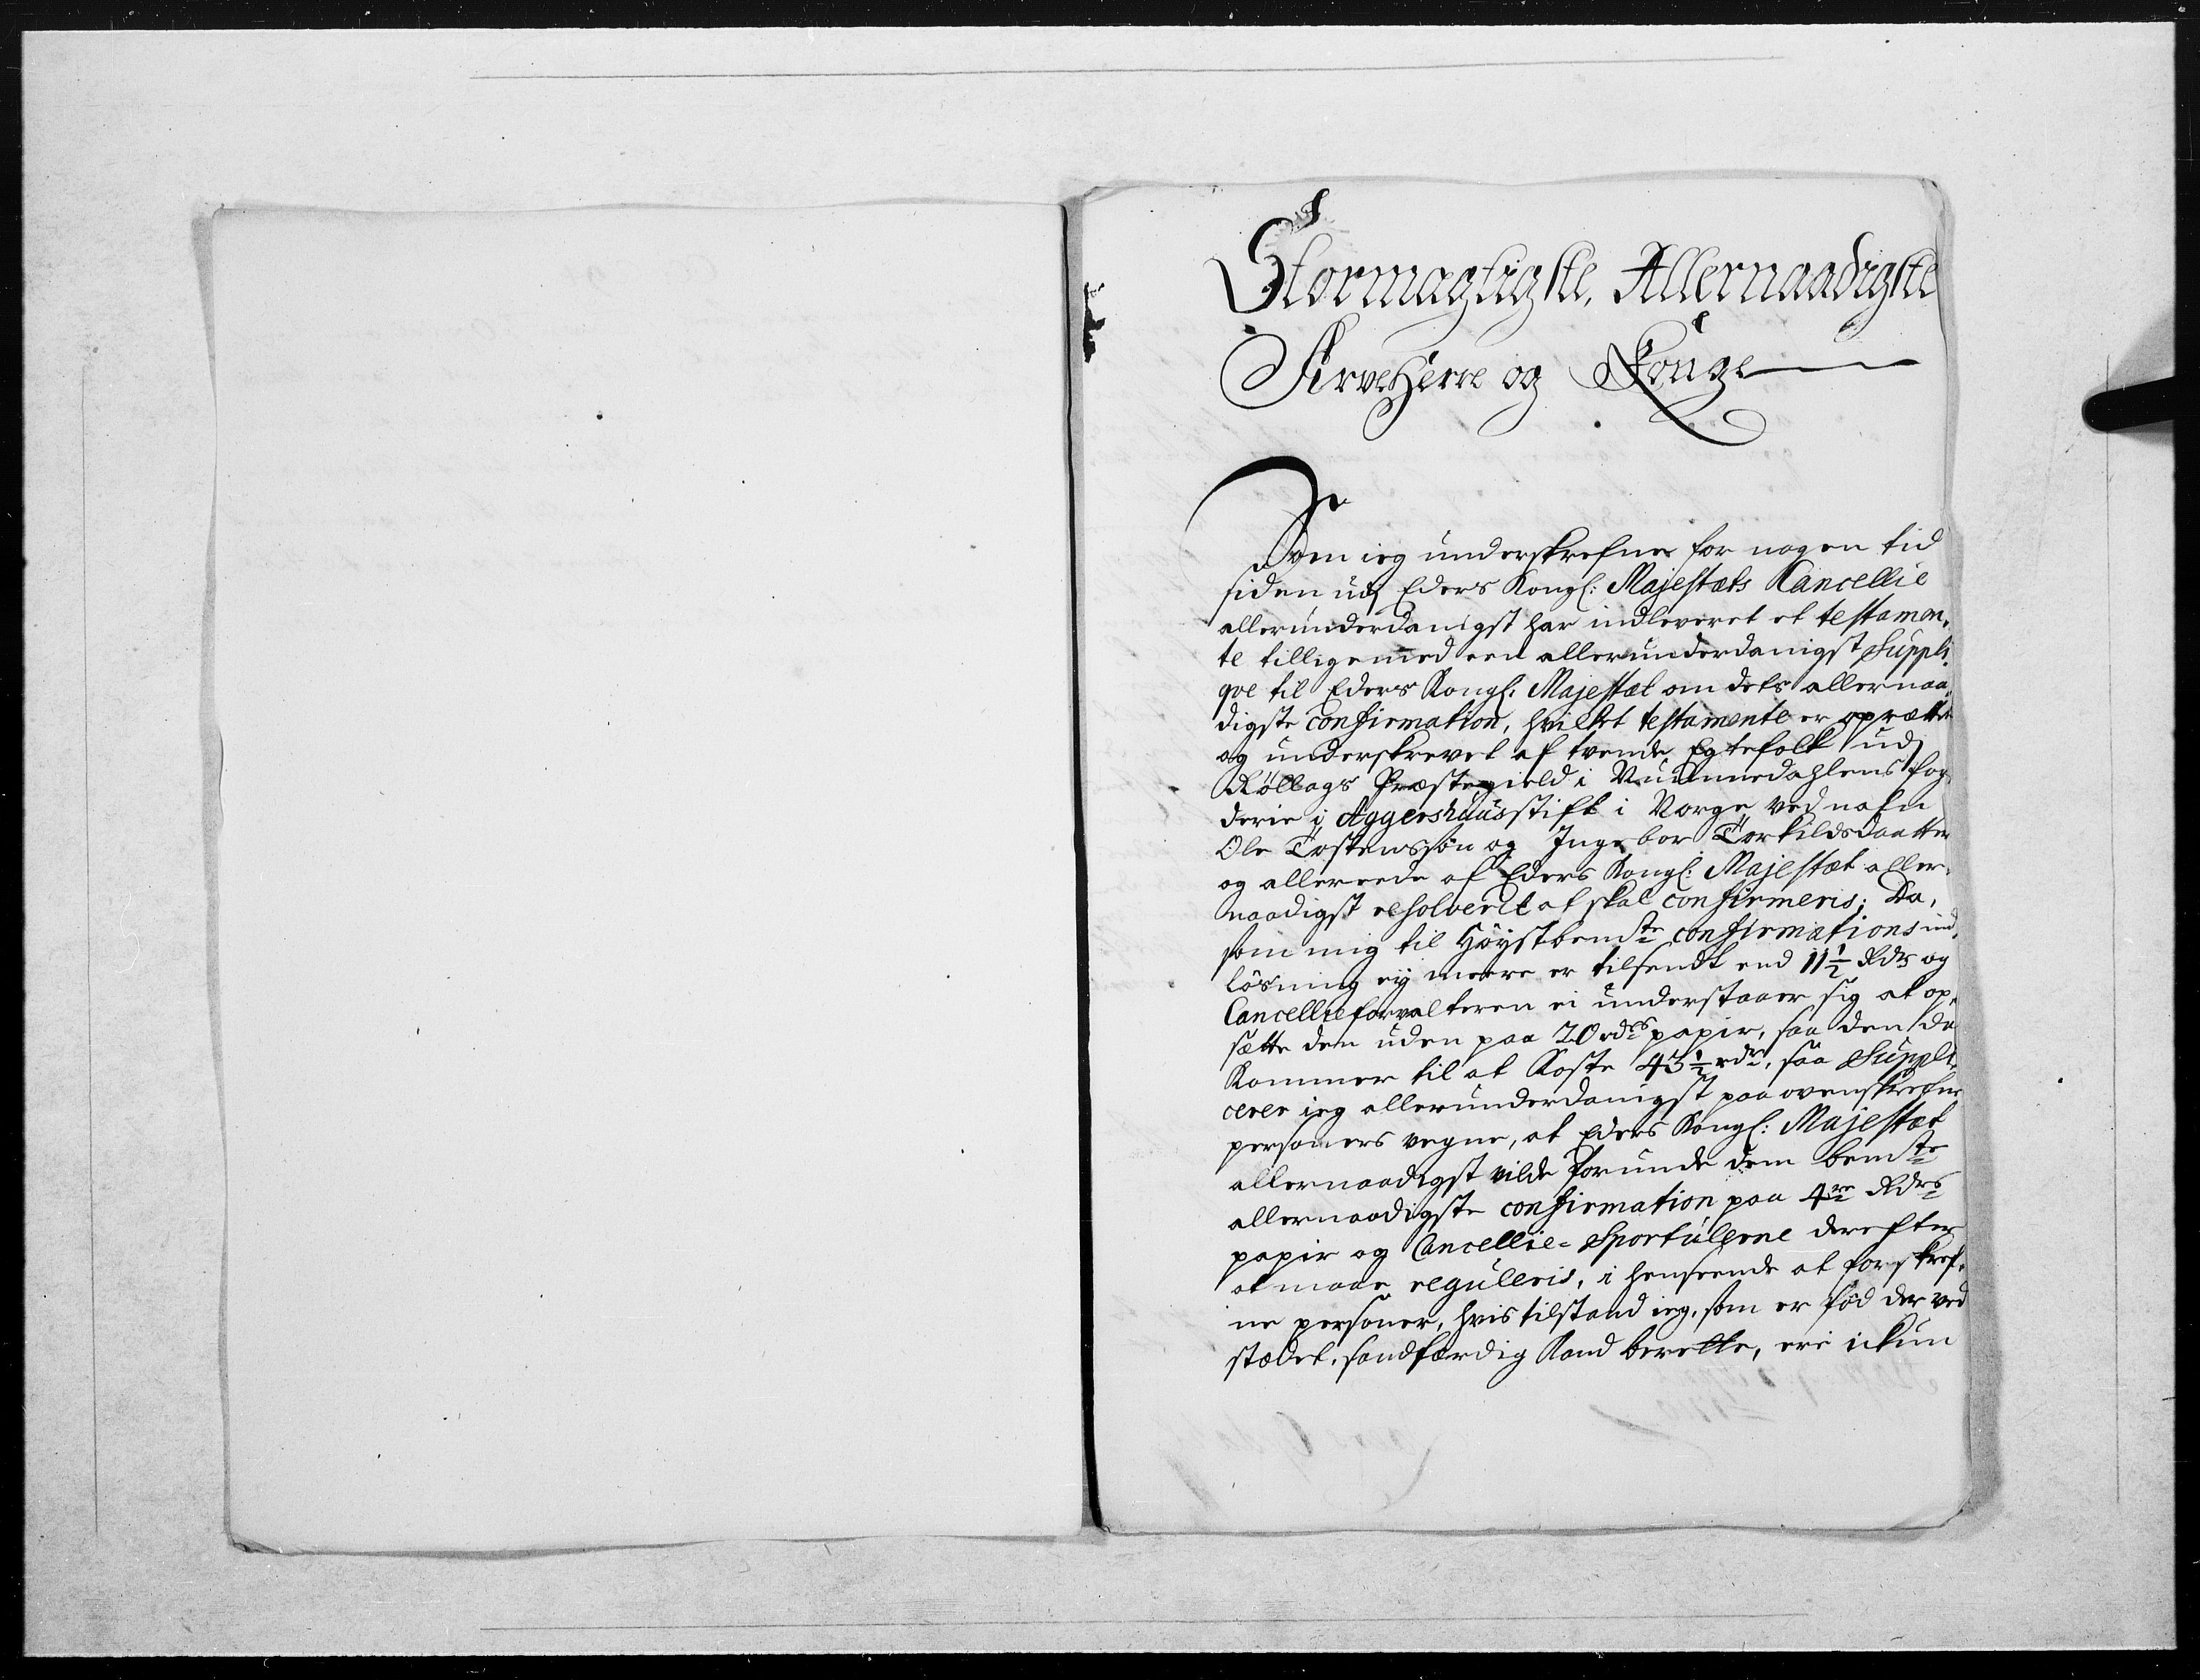 Stormagtigste, Allernaadigste
ArveHerre og Konge
Som ieg underskrefne for nogen tid
siden udj Eders Kongl: Majestæts Cancellie
allerunderdanigst har indleveret et testamen-
te tilligemed een allerunderdanigst Suppli-
qve til Eders Kongl: Majestæt om dets allernaa-
digste confirmation, hvilket testamente er oprættet
og underskrevet af tvende Egtefolk udj
Röllags Præstegield i Nummedahlens fog-
derie i Aggershuusstift i Norge ved nafn
Ole Tostenssön og Ingebor Torkildsdaatter
og allereede af Eders Kongl: Majestæt aller-
naadigst resolverit at skal confirmeris; Da,
som mig til Höystbemte confirmations ind-
lösning ey meere er tilsendt end 11½ Rdr og
Cancellieforvalteren ei understaaer sig at op-
sætte den uden paa 20 rdrs papir, saa den da
Kommer til at Koste 43½ rdr, saa Suppli-
cerer ieg allerunderdanigst paa ovenskrefne
personers vegne, at Eders Kongl: Majestæt
allernaadigst vilde forunde dem bemte
allernaadigste confirmation paa 4re Rdrs
papir og Cancellie-Sportulerne derefter
at maae reguleris, i henseende at forskref-
ne personer, hvis tilstand ieg, som er föd der ved
stædet, sandfærdig Kand berette, ere ickun